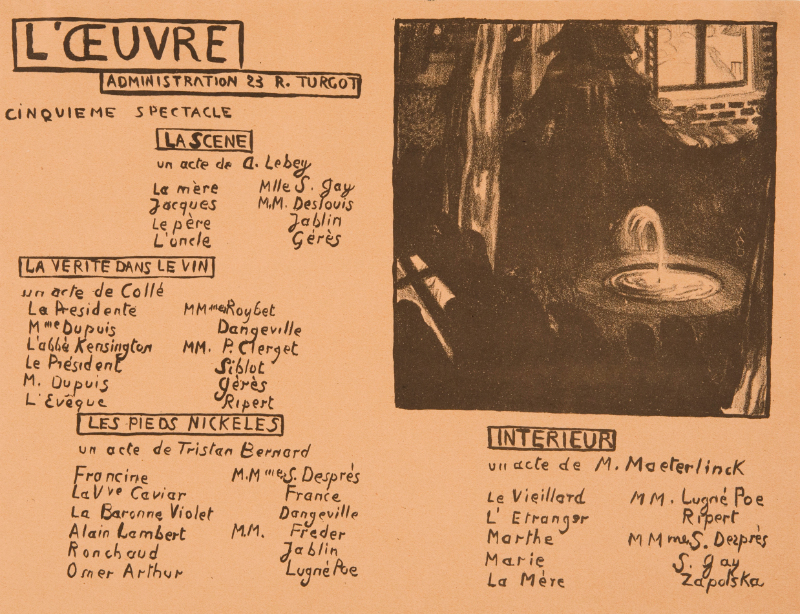 L'ŒUVRE
ADMINISTRATION 23 R. TURGOT
CINQUIEME SPECTACLE
LA SCENE
un acte de A. Lebey
La mère Mlle S. Gay
Jacques M.M. Deslouis
Le père Jablin
L'oncle Gérès
LA VERITE DANS LE VIN
un acte de Collé
La Presidente MMmes Roybet
Mme Dupuis Dangeville
L'abbé Kensington MM. P. Clerget
Le Président Siblot
M. Dupuis Gérès
L'Evêque Ripert
LES PIEDS NICKELES
un acte de Tristan Bernard
Francine M.Mmes S. Desprès
La Vve Caviar France
La Baronne Violet Dangeville
Alain Lambert M.M. Freder
Ronchaud Jablin
Omer Arthur Lugné Poe
INTERIEUR
un acte de M. Maeterlinck
Le Vieillard MM. Lugné Poe
L'Etranger Ripert
Marthe MMmes S. Desprès
Marie S. Gay
La Mère Zapolska